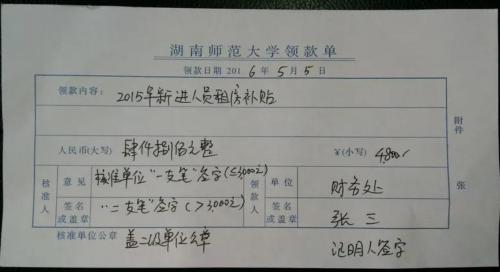 湖南师范大学领款单
领款日期 2016年5月5日
领款内容：2015年新进人员租房补贴
人民币(大写) 肆仟捌佰元整 ¥(小写) 4800
附件 张
核准人 意见 核准单位"一支笔"签字(≤3,000元) 领款人 单位 财务处
签名或盖章 "二支笔"签字(>3,000元) 签名或盖章 张三
核准单位公章 盖二级单位公章 证明人签字